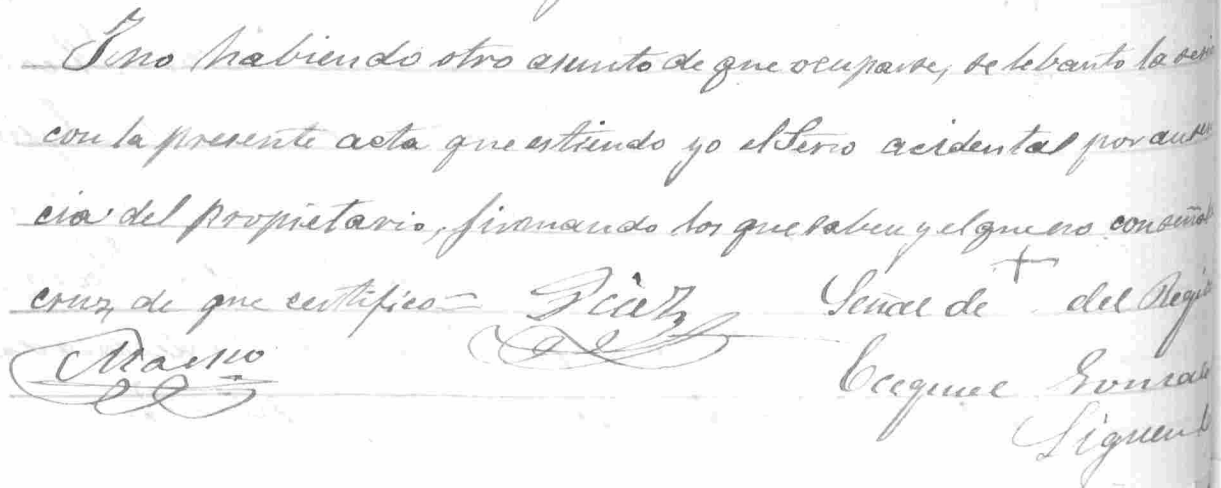 Y no habiendo otro asunto de que ocuparse, se lebanto la sesi
con la presente acta que estiendo yo el Serio acidental por ausen
cia del propietario, firmando los que saben y el que no con señal
cruz, de que certifico=
Diaz
Señal de + del Regi
Ecequiel Gonzale
Siguen l